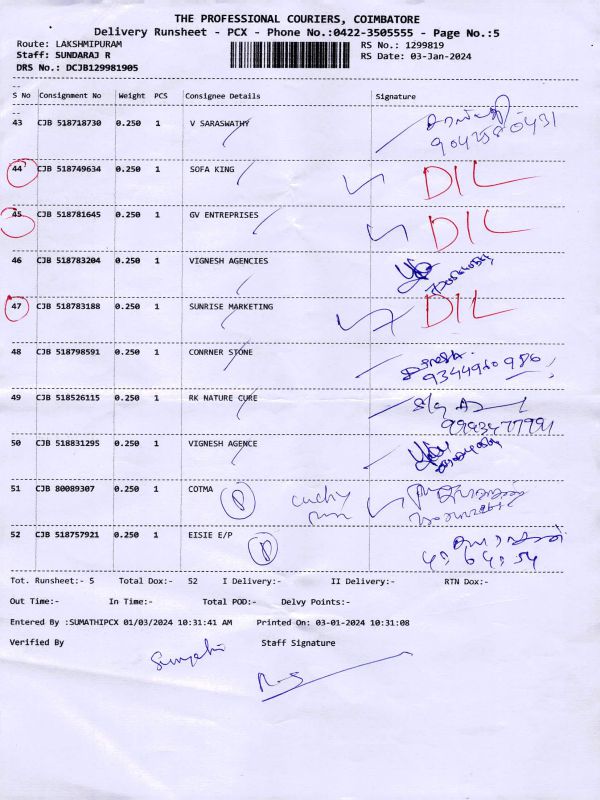 THE PROFESSIONAL COURIERS, COIMBATORE
Delivery Runsheet - PCX - Phone No.:0422-3505555 - Page No.:5
Route: LAKSHMIPURAM RS No.: 1299819
Staff: SUNDARAJ R RS Date: 03-Jan-2024
DRS No.: DCJB129981905
S No Consignment No Weight PCS Consignee Details Signature
43 CJB 518718730 0.250 1 V SARASWATHY
44 CJB 518749634 0.250 1 SOFA KING DIL
45 CJB 518781645 0.250 1 GV ENTREPRISES DIL
46 CJB 518783204 0.250 1 VIGNESH AGENCIES
47 CJB 518783188 0.250 1 SUNRISE MARKETING DIL
48 CJB 518798591 0.250 1 CONRNER STONE
49 CJB 518526115 0.250 1 RK NATURE CURE
50 CJB 518831295 0.250 1 VIGNESH AGENCE
51 CJB 80089307 0.250 1 COTMA P
52 CJB 518757921 0.250 1 EISIE E/P P
Tot. Runsheet:- 5 Total Dox:- 52 I Delivery:- II Delivery:- RTN Dox:-
Out Time:- In Time:- Total POD:- Delvy Points:-
Entered By :SUMATHIPCX 01/03/2024 10:31:41 AM Printed On: 03-01-2024 10:31:08
Verified By Staff Signature